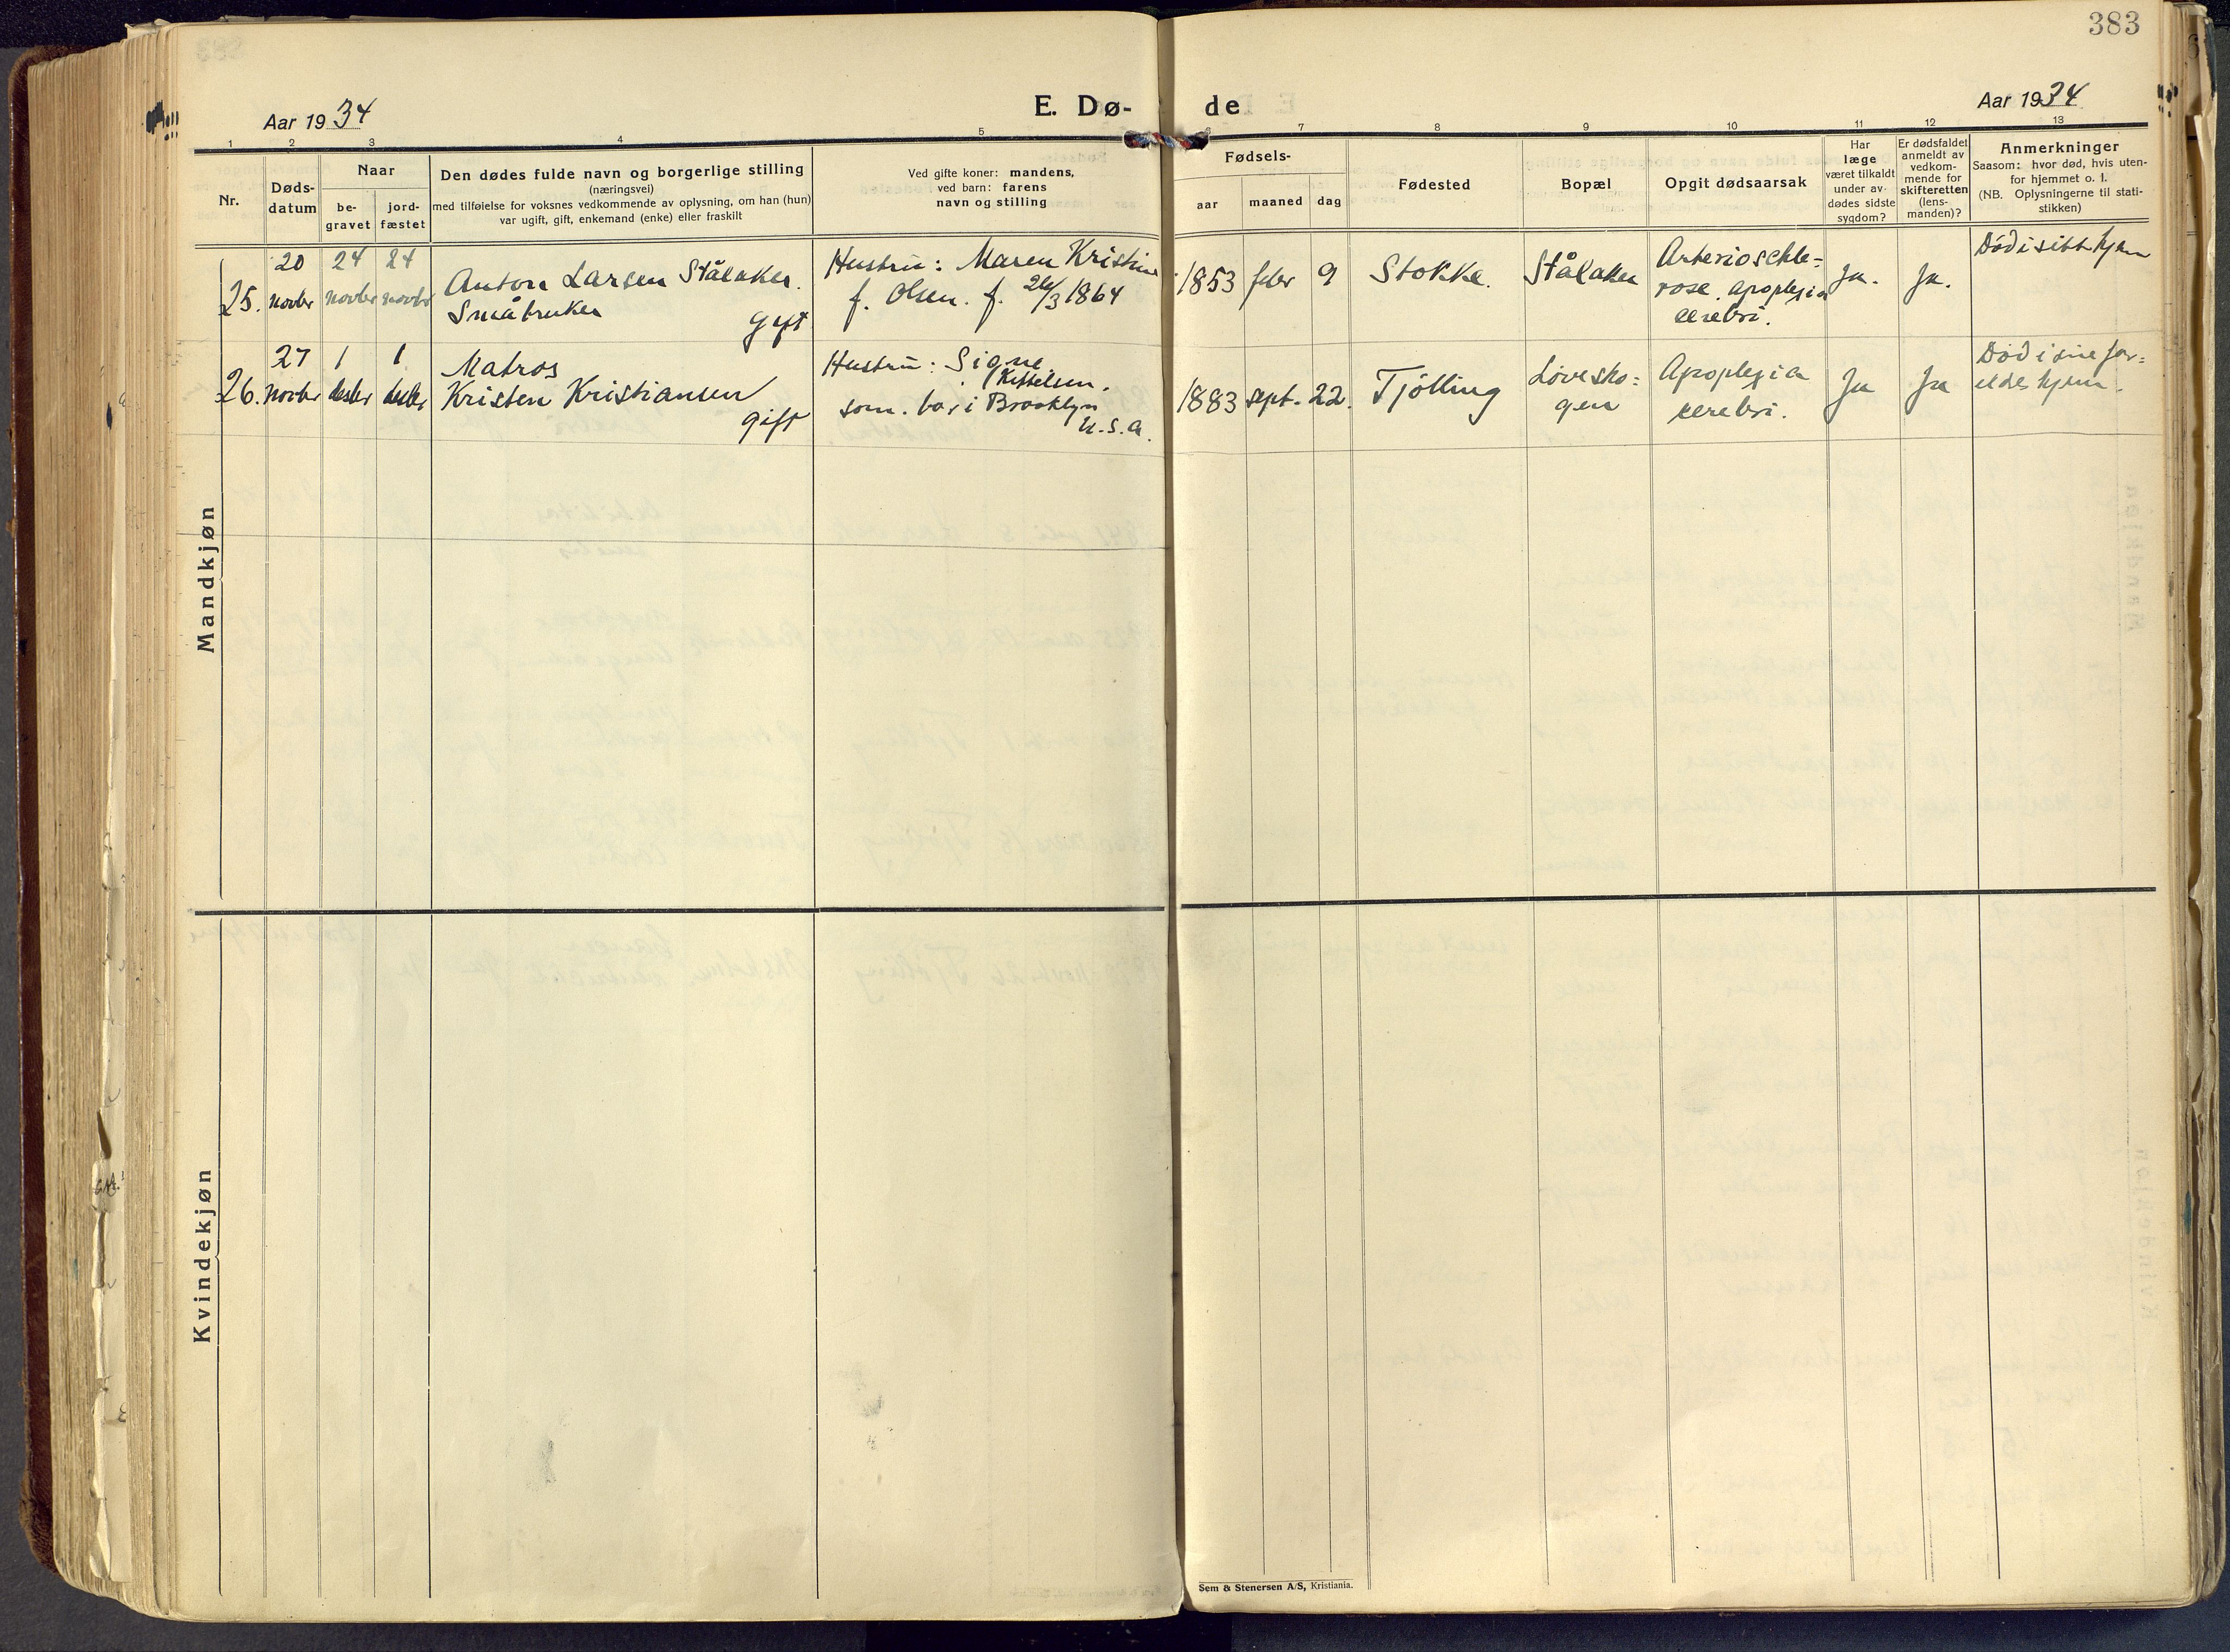 383
Aar 1934
E. Dø-
de
Aar 1934
1 2 3 4 5 6 7 8 9 10 11 12 13
Nr.
Døds-
datum
Naar
be-
gravet
jord-
fæstet
Den dødes fulde navn og borgerlige stilling
(næringsvei)
med tilføielse for voksnes vedkommende av oplysning, om han (hun)
var ugift, gift, enkemand (enke) eller fraskilt
Ved gifte koner: mandens,
ved barn: farens
navn og stilling
Fødsels-
aar
maaned
dag
Fødested
Bopæl
Opgit dødsaarsak
Har
læge
været tilkaldt
under av-
dødes sidste
sygdom?
Er dødsfaldet
anmeldt av
vedkom-
mende for
skifteretten
(lens-
manden)?
Anmerkninger
Saasom: hvor død, hvis uten-
for hjemmet o. l.
(NB. Oplysningerne til stati-
stikken)
Mandkjøn
25.
20
novbr
24
novbr
24
novbr
Anton Larsen Stålaker.
Småbruker
gift
Hustru: Maren Kristine
f. Olsen. f. 26/3 1864
1853
febr
9
Stokke.
Stålaker
Arterioschle-
rose. apoplexia
cerebri.
Ja.
Ja.
Død i sitt hjem
26.
27
novbr
1
desbr
1
desbr
Matros
Kristen Kristiansen
gift
Hustru: Signe
Kittelsen.
som. bor i Brooklyn
U.S.A.
1883
sept.
22.
Tjølling
Løvesko=
gen
Apoplexia
cerebri.
Ja
Ja
Død i sine for=
eldes hjem.
Kvindekjøn
Sem & Stenersen A/S, Kristiania.